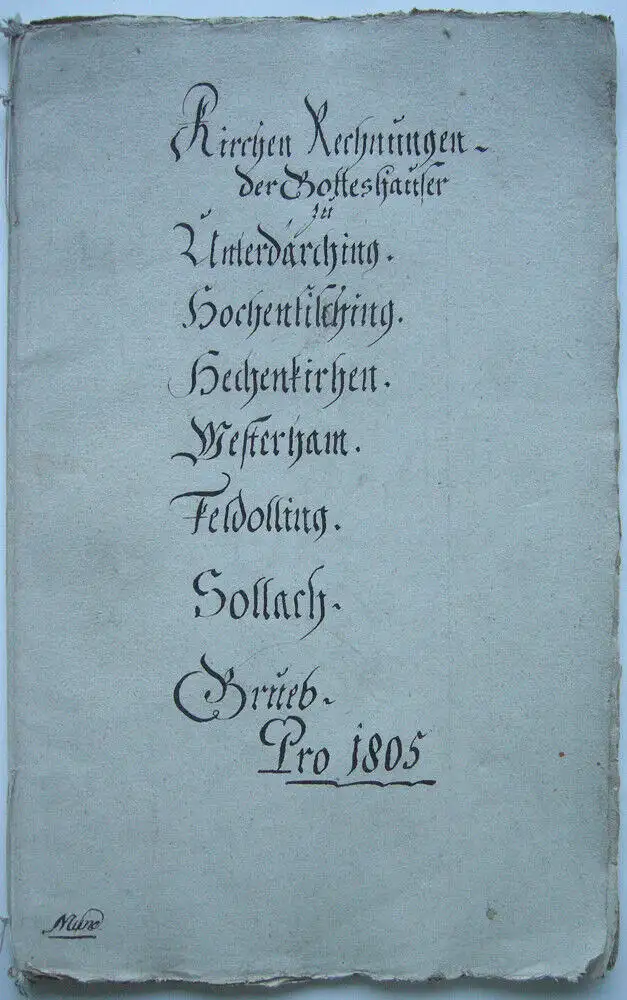 Kirchen Rechnungen
der Gotteshäuser
zu
Unterdárching.
Hochenkilching.
Hechenkirhen.
Westerham.
Feldolling.
Sollach.
Grueb.
Pro 1805